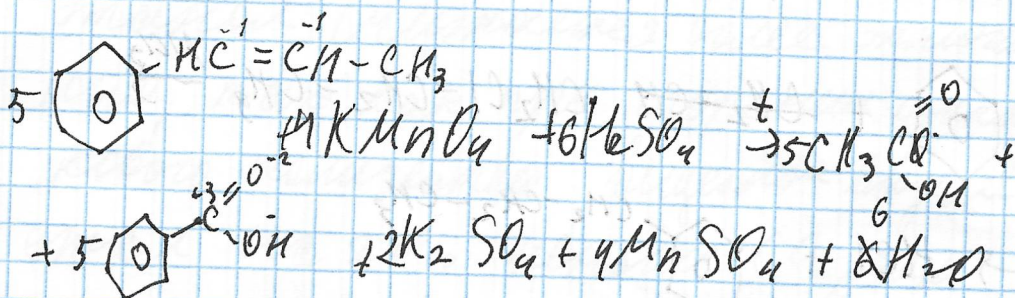 5 -HC⁻¹=C⁻¹H-CH₃
+4KMnO₄ +6H₂SO₄ →t 5CH₃C=O-OH +
+5 C⁺³=O⁻² -OH +2K₂SO₄ + 4MnSO₄ + 6H₂O